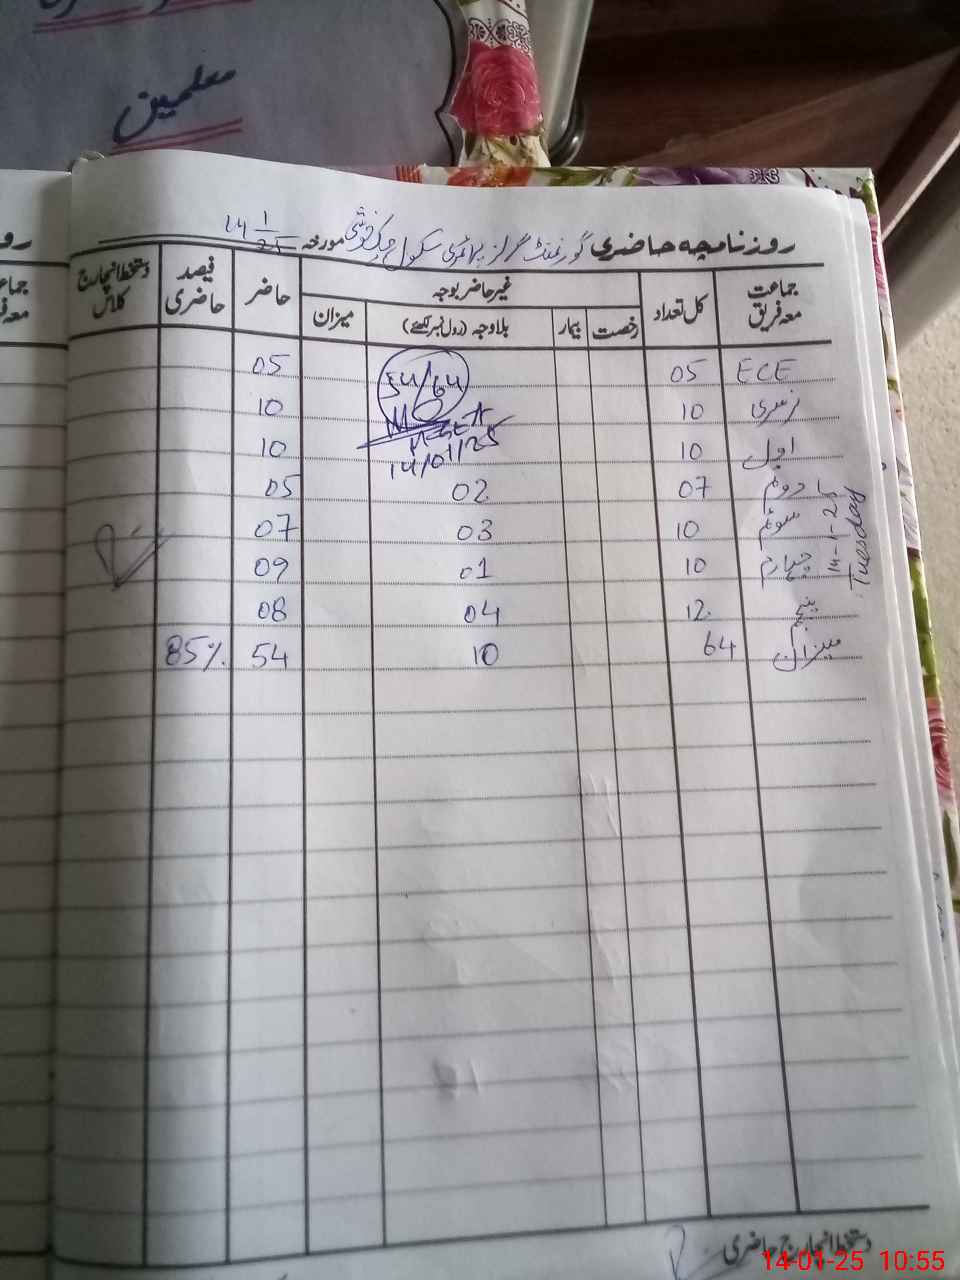 معلمین
روزنامچہ حاضری گورنمنٹ گرلز پرائمری سکول چک خوشی مورخہ 14 1/25
جماعت معہ فریق کل تعداد غیر حاضر بوجہ حاضر فیصد حاضری دستخط انچارج کلاس
رخصت بیمار بلاوجہ (رول نمبر لکھئے) میزان
ECE 05 54/64 05
نرسری 10 10
اول 10 14/01/25 10
دوئم 07 02 05
سوئم 10 03 07
چہارم 10 01 09
پنجم 12 04 08
میزان 64 10 54 85%
14-1-25
Tuesday
دستخط انچارج حاضری
14-01-25 10:55